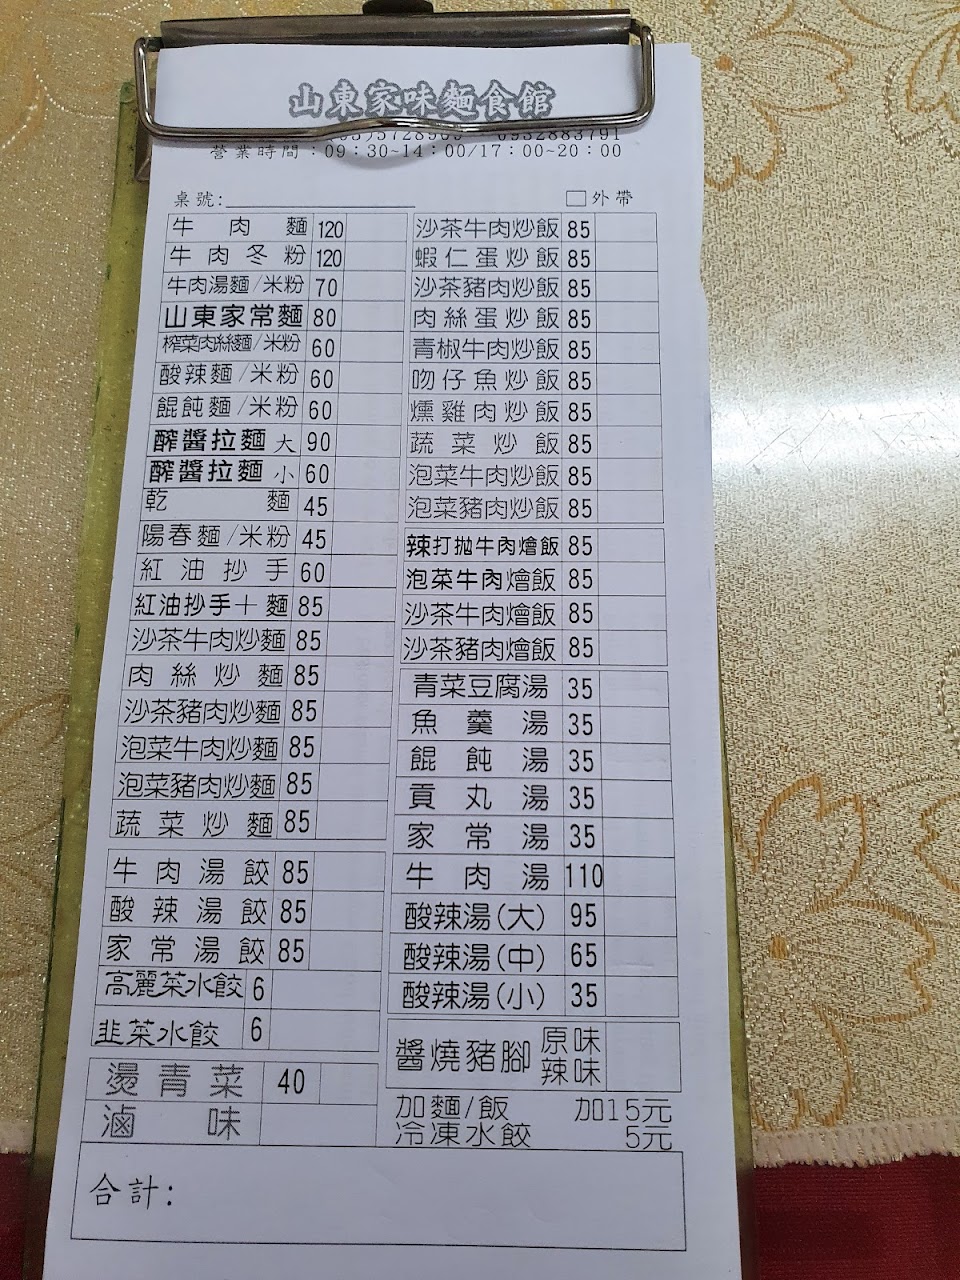 山東家味麵食館
營業時間：09：30~14：00/17：00~20：00
桌號：
□外帶
牛肉麵 120
牛肉冬粉 120
牛肉湯麵/米粉 70
山東家常麵 80
榨菜肉絲麵/米粉 60
酸辣麵/米粉 60
餛飩麵/米粉 60
醡醬拉麵 大 90
醡醬拉麵 小 60
乾麵 45
陽春麵/米粉 45
紅油抄手 60
紅油抄手＋麵 85
沙茶牛肉炒麵 85
肉絲炒麵 85
沙茶豬肉炒麵 85
泡菜牛肉炒麵 85
泡菜豬肉炒麵 85
蔬菜炒麵 85
牛肉湯餃 85
酸辣湯餃 85
家常湯餃 85
高麗菜水餃 6
韭菜水餃 6
燙青菜 40
滷味
沙茶牛肉炒飯 85
蝦仁蛋炒飯 85
沙茶豬肉炒飯 85
肉絲蛋炒飯 85
青椒牛肉炒飯 85
吻仔魚炒飯 85
燻雞肉炒飯 85
蔬菜炒飯 85
泡菜牛肉炒飯 85
泡菜豬肉炒飯 85
辣打拋牛肉燴飯 85
泡菜牛肉燴飯 85
沙茶牛肉燴飯 85
沙茶豬肉燴飯 85
青菜豆腐湯 35
魚羹湯 35
餛飩湯 35
貢丸湯 35
家常湯 35
牛肉湯 110
酸辣湯(大) 95
酸辣湯(中) 65
酸辣湯(小) 35
醬燒豬腳 原味 辣味
加麵/飯 加15元
冷凍水餃 5元
合計：